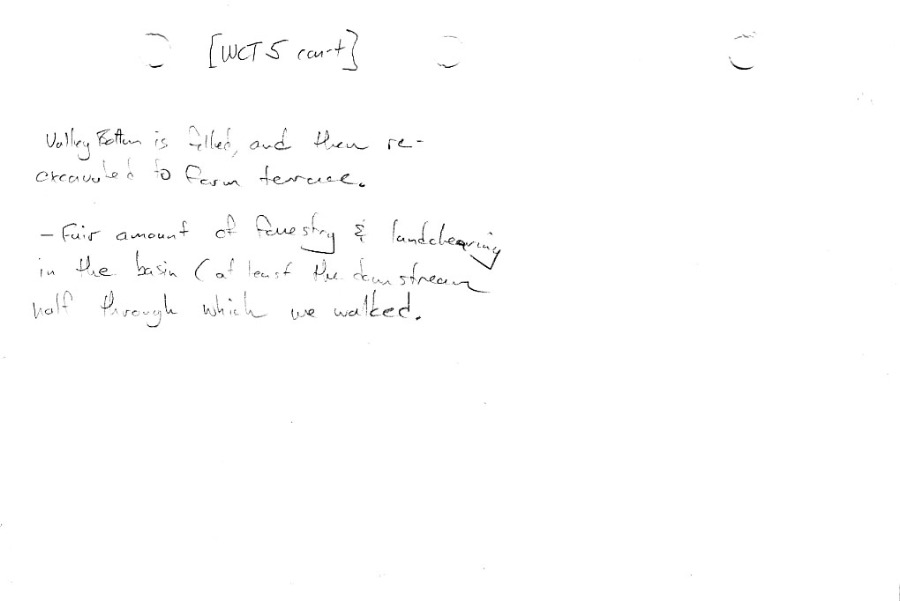 [WCT5 con't]
Valley Bottom is filled, and then re-
excavated to form terrace.
- Fair amount of forestry & landclearing
in the basin (at least the downstream
half through which we walked.